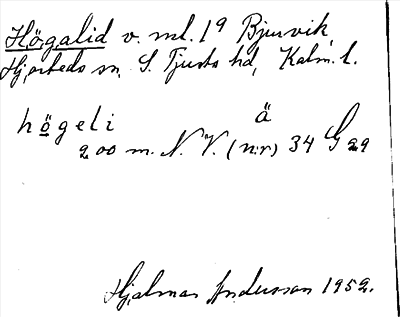 Högalid v. ml. 1⁹ Bjurvik
Hjorteds sn, S. Tjusts hd, Kalm. l.
högeli ä
200 m. N.V. (nr) 34 G 29
Hjalmar Andersson 1952.